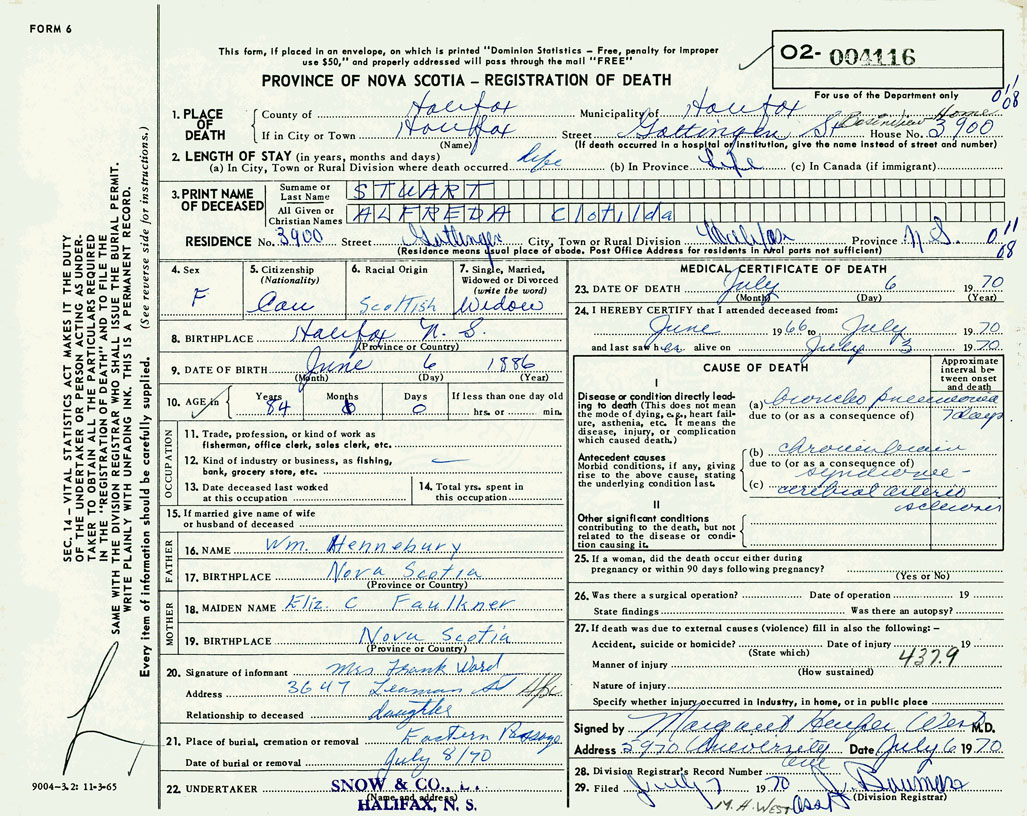 FORM 6
This form, if placed in an envelope, on which is printed "Dominion Statistics – Free, penalty for improper
use $50," and properly addressed will pass through the mail "FREE"
PROVINCE OF NOVA SCOTIA – REGISTRATION OF DEATH
O2- 004116
For use of the Department only
SEC. 14 – VITAL STATISTICS ACT MAKES IT THE DUTY
OF THE UNDERTAKER OR PERSON ACTING AS UNDER-
TAKER TO OBTAIN ALL THE PARTICULARS REQUIRED
IN THE "REGISTRATION OF DEATH" AND TO FILE THE
SAME WITH THE DIVISION REGISTRAR WHO SHALL ISSUE THE BURIAL PERMIT.
WRITE PLAINLY WITH UNFADING INK. THIS IS A PERMANENT RECORD.
Every item of information should be carefully supplied. (See reverse side for instructions.)
1. PLACE OF DEATH
County of Halifax Municipality of Halifax
If in City or Town Halifax Street Gottingen St House No. 3900
Home
(Name) (If death occurred in a hospital or institution, give the name instead of street and number)
2. LENGTH OF STAY (in years, months and days)
(a) In City, Town or Rural Division where death occurred life (b) In Province Life (c) In Canada (if immigrant)
3. PRINT NAME OF DECEASED
Surname or Last Name STUART
All Given or Christian Names ALFREDA Clotilda
RESIDENCE No. 3900 Street Gottingen City, Town or Rural Division Halifax Province N.S. 0 11 08
(Residence means usual place of abode. Post Office Address for residents in rural parts not sufficient)
4. Sex F
5. Citizenship (Nationality) Can
6. Racial Origin Scottish
7. Single, Married, Widowed or Divorced (write the word) Widow
8. BIRTHPLACE Halifax N. S.
(Province or Country)
9. DATE OF BIRTH June 6 1886
(Month) (Day) (Year)
10. AGE in Years 84 Months Days 0 If less than one day old
hrs. or min.
OCCUPATION
11. Trade, profession, or kind of work as
fisherman, office clerk, sales clerk, etc.
12. Kind of industry or business, as fishing,
bank, grocery store, etc. —
13. Date deceased last worked
at this occupation
14. Total yrs. spent in
this occupation
15. If married give name of wife
or husband of deceased
FATHER
16. NAME Wm. Hennebury
17. BIRTHPLACE Nova Scotia
(Province or Country)
MOTHER
18. MAIDEN NAME Eliz. C Faulkner
19. BIRTHPLACE Nova Scotia
(Province or Country)
20. Signature of informant Mrs Frank Ward
Address 3647 Leaman St Hfx
Relationship to deceased daughter
21. Place of burial, cremation or removal Eastern Passage
Date of burial or removal July 8/70
22. UNDERTAKER SNOW & CO., L.
(Name and address)
HALIFAX, N. S.
9004–3.2: 11-3-65
MEDICAL CERTIFICATE OF DEATH
23. DATE OF DEATH July 6 1970
(Month) (Day) (Year)
24. I HEREBY CERTIFY that I attended deceased from:
June 1966 to July 1970
and last saw her alive on July 3 1970
CAUSE OF DEATH
Approximate interval between onset and death
I
Disease or condition directly lead-
ing to death (This does not mean
the mode of dying, e.g., heart fail-
ure, asthenia, etc. It means the
disease, injury, or complication
which caused death.)
(a) broncho pneumonia
due to (or as a consequence of) 7 days
Antecedent causes
Morbid conditions, if any, giving
rise to the above cause, stating
the underlying condition last.
(b) chronic brain
due to (or as a consequence of)
syndrome –
(c) cerebral arterio
sclerosis
II
Other significant conditions
contributing to the death, but not
related to the disease or condi-
tion causing it.
25. If a woman, did the death occur either during
pregnancy or within 90 days following pregnancy?
(Yes or No)
26. Was there a surgical operation? Date of operation 19
State findings Was there an autopsy?
27. If death was due to external causes (violence) fill in also the following: –
Accident, suicide or homicide? Date of injury 19
(State which) 437.9
Manner of injury
(How sustained)
Nature of injury
Specify whether injury occurred in Industry, in home, or in public place
Signed by Margaret West M.D.
Address 5970 University Ave Date July 6 1970
28. Division Registrar's Record Number
29. Filed July 7 1970
(Division Registrar)
M. H. WEST